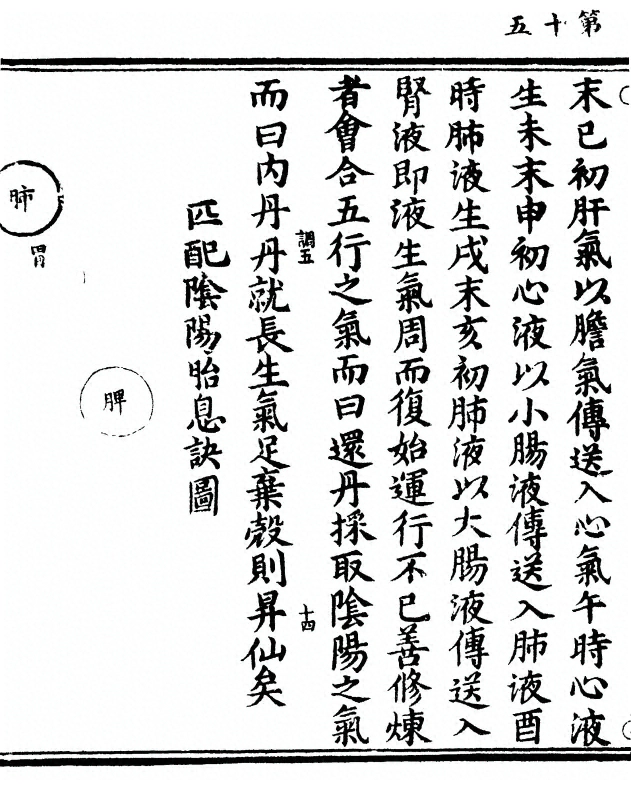 第十五
末巳初肝氣以膽氣傳送入心氣午時心液
生未末申初心液以小腸液傳送入肺液酉
時肺液生戌末亥初肺液以大腸液傳送入
腎液即液生氣周而復始運行不已善修煉
者會合五行之氣而曰還丹採取陰陽之氣
調五
十四
而曰內丹丹就長生氣足棄殼則昇仙矣
匹配陰陽胎息訣圖
脾
胃
肺